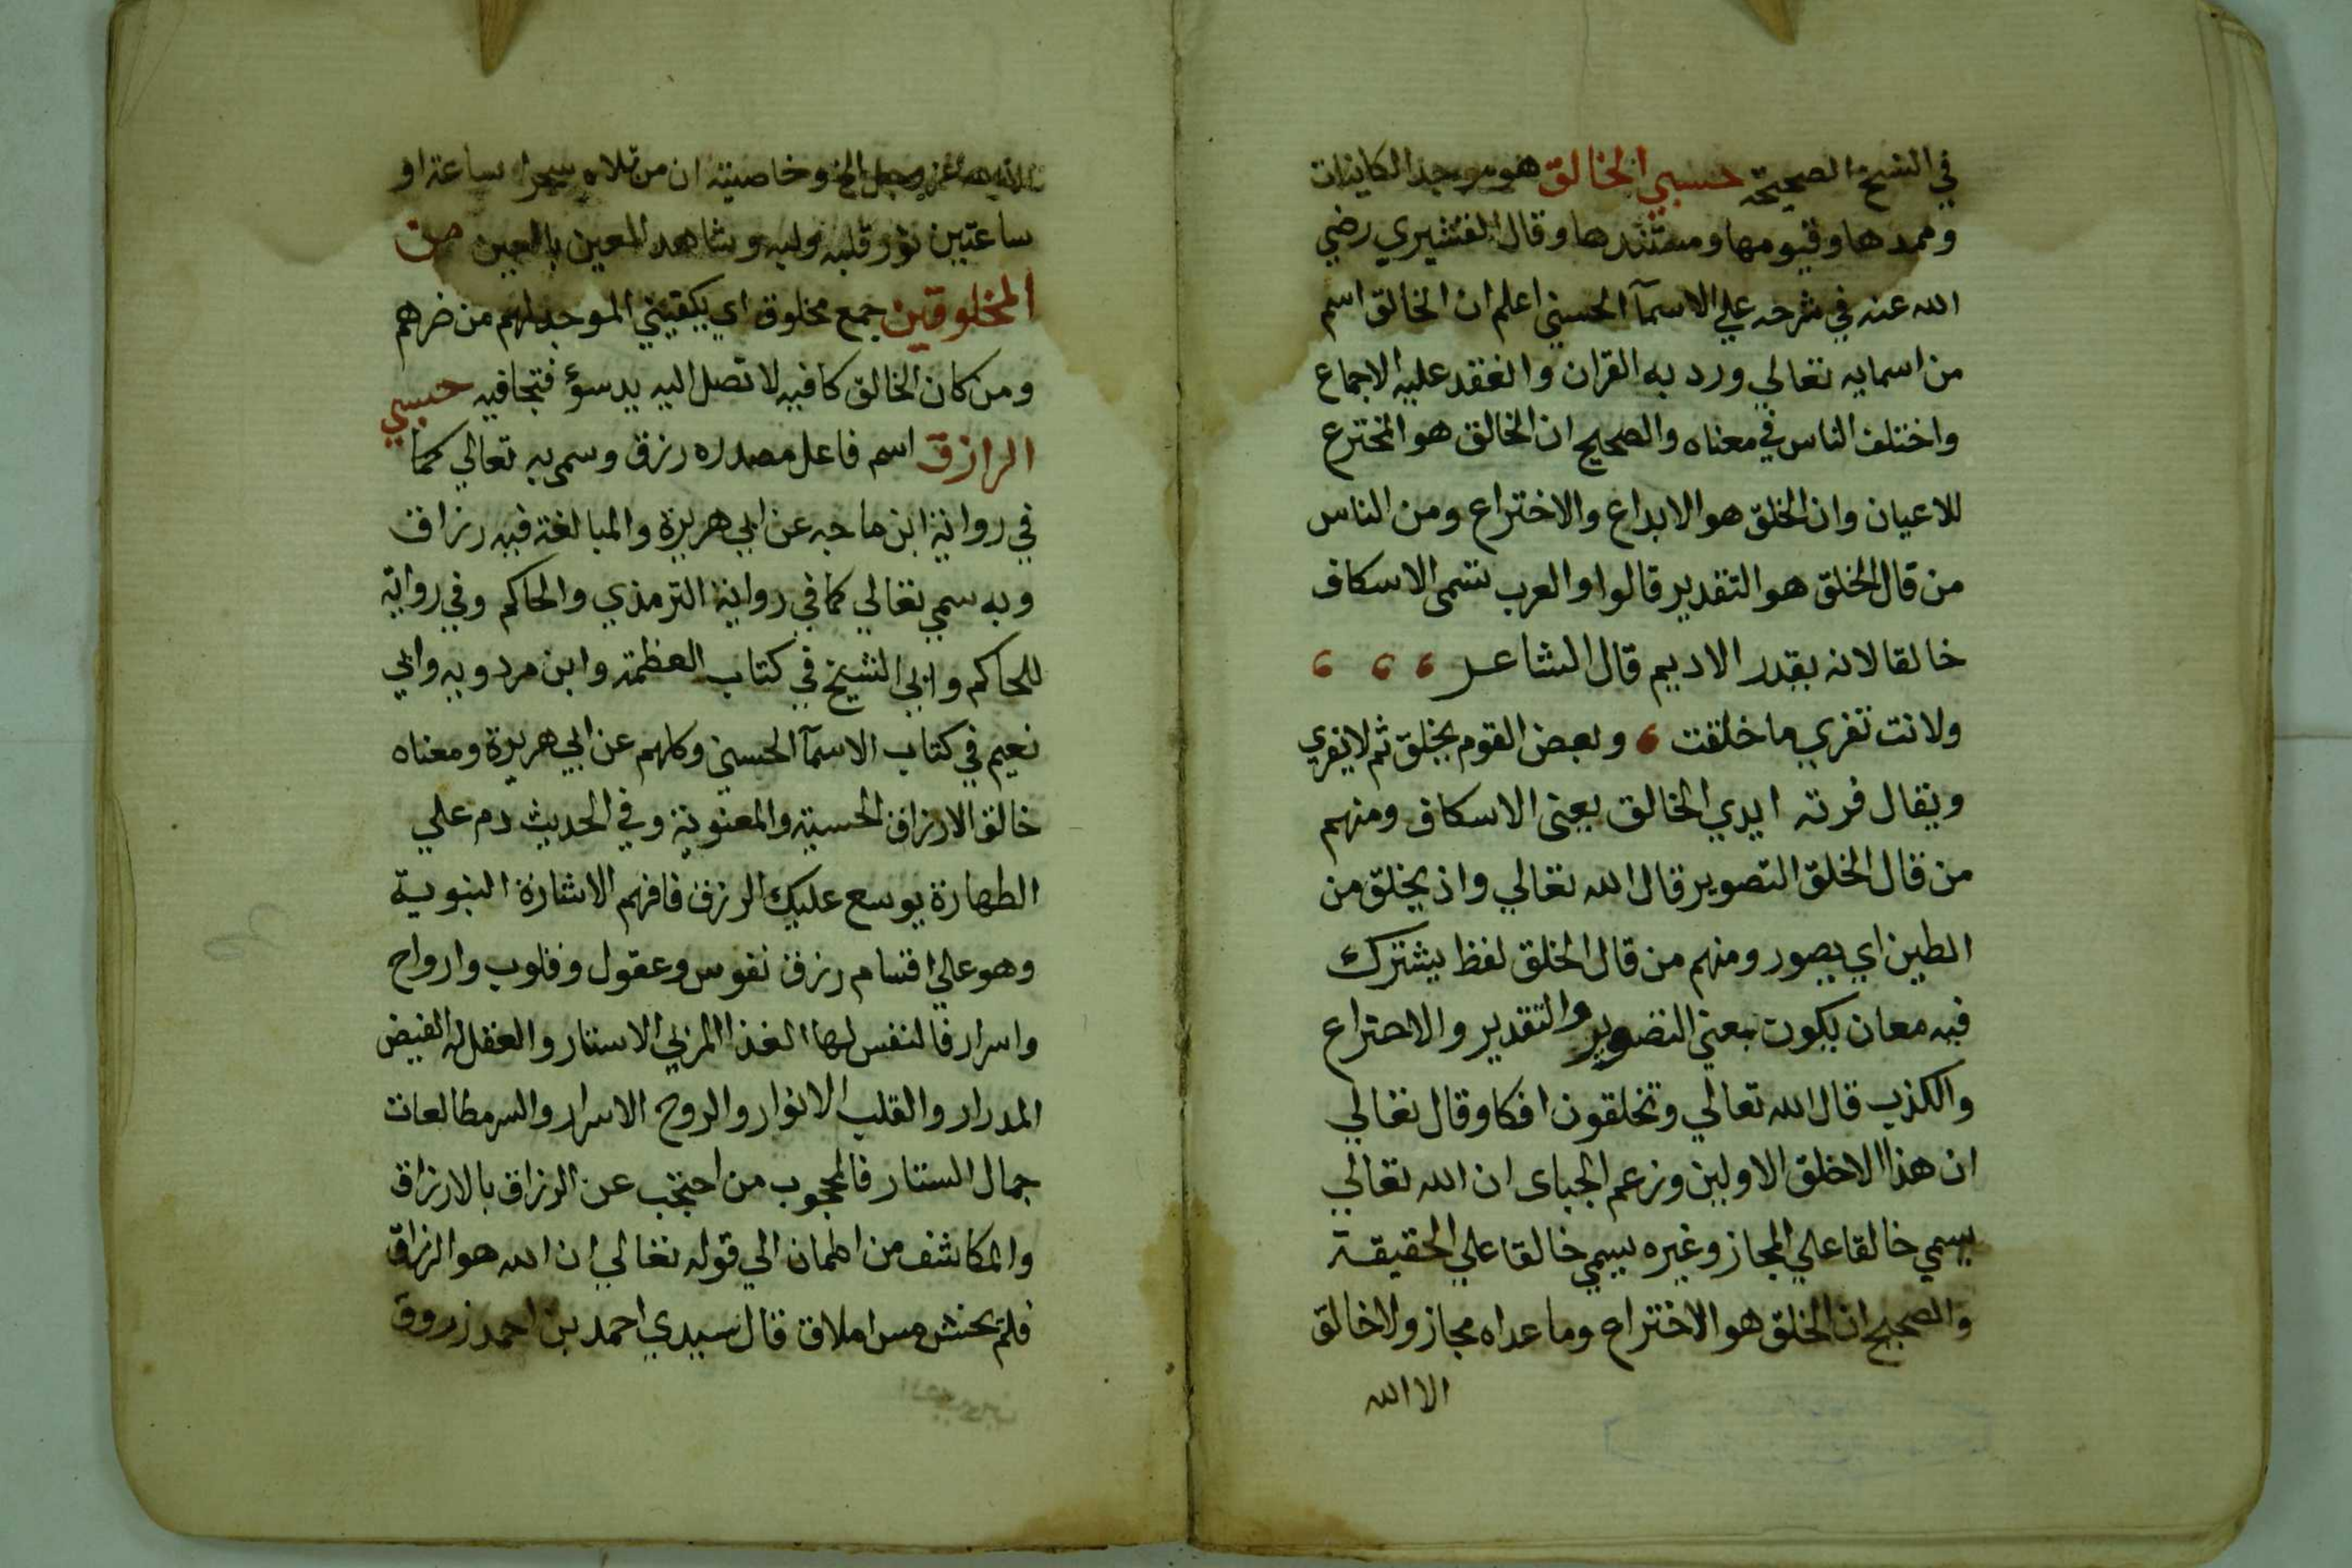 في النسخ الصحيحة حسبي الخالق هو موجد الكاينات
وممدها وقيومها ومستندها وقال القشيري رضي
الله عنه في شرحه علي الاسمآ الحسني اعلم ان الخالق اسم
من اسمايه تعالي ورد به القران وانعقد عليه الاجماع
واختلف الناس في معناه والصحيح ان الخالق هو المخترع
للاعيان وان الخلق هو الابداع والاختراع ومن الناس
من قال الخلق هو التقدير قالوا والعرب تسمى الاسكاف
خالقا لانه يقدر الاديم قال الشاعر ، ، ،
ولانت تفري ما خلقت ، وبعض القوم يخلق ثم لا يفري
ويقال فرته ايدي الخالق يعني الاسكاف ومنهم
من قال الخلق التصوير قال الله تعالي واذ يخلق من
الطين اي يصور ومنهم من قال الخلق لفظ يشترك
فيه معان يكون بمعني التصوير والتقدير والاختراع
والكذب قال الله تعالي وتخلقون افكا وقال تعالي
ان هذا الا خلق الاولين وزعم الجباى ان الله تعالي
يسمي خالقا علي المجاز وغيره يسمي خالقا علي الحقيقة
والصحيح ان الخلق هو الاختراع وما عداه مجاز ولا خالق
الا الله
عز وجل الخ وخاصيته ان من تلاه سحرا ساعة او
ساعتين نور قلبه ولبه وشاهد المعين بالعين من
المخلوقين جمع مخلوق اي يكفيني الموجد لهم من ضرهم
ومن كان الخالق كافيه لا تصل اليه يد سوؤ فتجافيه حسبي
الرازق اسم فاعل مصدره رزق وسمى به تعالي كما
في رواية ابن ماجه عن ابي هريرة والمبالغة فيه رزاق
وبه سمي تعالي كما في رواية الترمذي والحاكم وفي رواية
للحاكم وابي الشيخ في كتاب العظمة وابن مردويه وابي
نعيم في كتاب الاسمآ الحسني وكلهم عن ابي هريرة ومعناه
خالق الارزاق الحسية والمعنوية وفي الحديث دم علي
الطهارة يوسع عليك الرزق فافهم الاشارة النبوية
وهو علي اقسام رزق نفوس وعقول وقلوب وارواح
واسرار فالنفس لها الغذا المزلي الاستار والعقل له الفيض
المدرار والقلب الانوار والروح الاسرار والسر مطالعات
جمال الستار فالمحجوب من احتجب عن الرزاق بالارزاق
والمكاشف من اطمان الي قوله تعالي ان الله هو الرزاق
فلم يخش مس املاق قال سيدي احمد بن احمد زروق